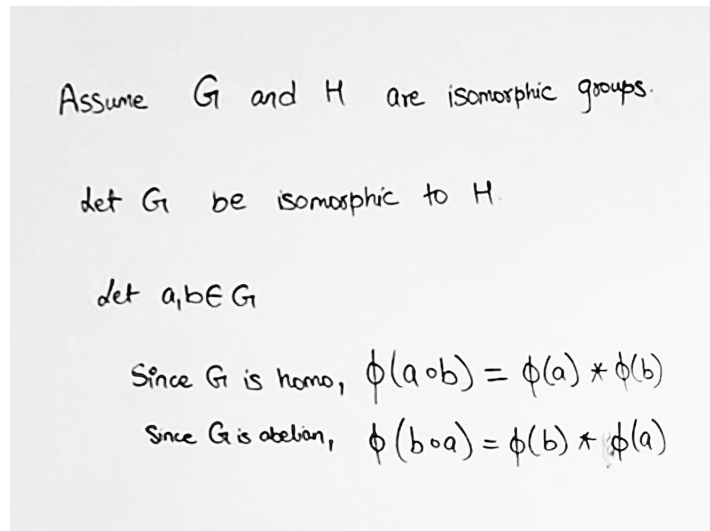 Assume G and H are isomorphic groups.
Let G be isomorphic to H.
Let a,b∈G
Since G is homo, ϕ(a∘b) = ϕ(a) * ϕ(b)
Since G is abelian, ϕ(b∘a) = ϕ(b) * ϕ(a)